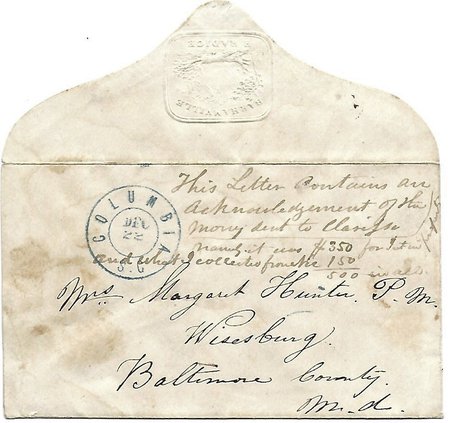 BARHAMVILLE
PARADICE
COLUMBIA
DEC
22
S.C
This Letter Contains an
Acknowledgement of the
money sent to Clarissa
it was $350 for
and what I collected from the 150
500 in all.
Mrs. Margaret Hunter. P. M.
Wisesburg.
Baltimore County.
M.d.